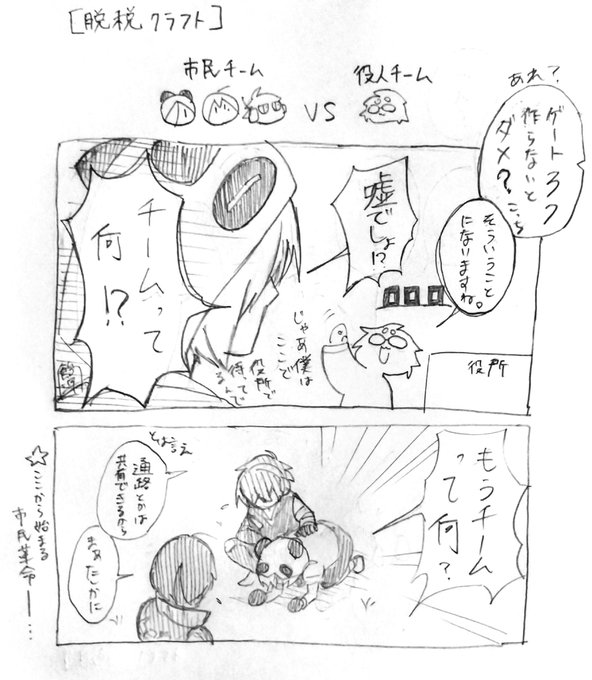 [脱税クラフト]
市民チーム
VS
役人チーム
あれ?
ゲート3つ
作らないと
ダメ?
こっち
そういうこと
になりますね。
嘘でしょ!?
チームって
何!?
じゃあ僕は
ここで
役所で
待って
るんで
役所
もうチーム
って何?
とは言え
通路とかは
共有できるから
まあたかに
☆ここから始まる
市民革命――…